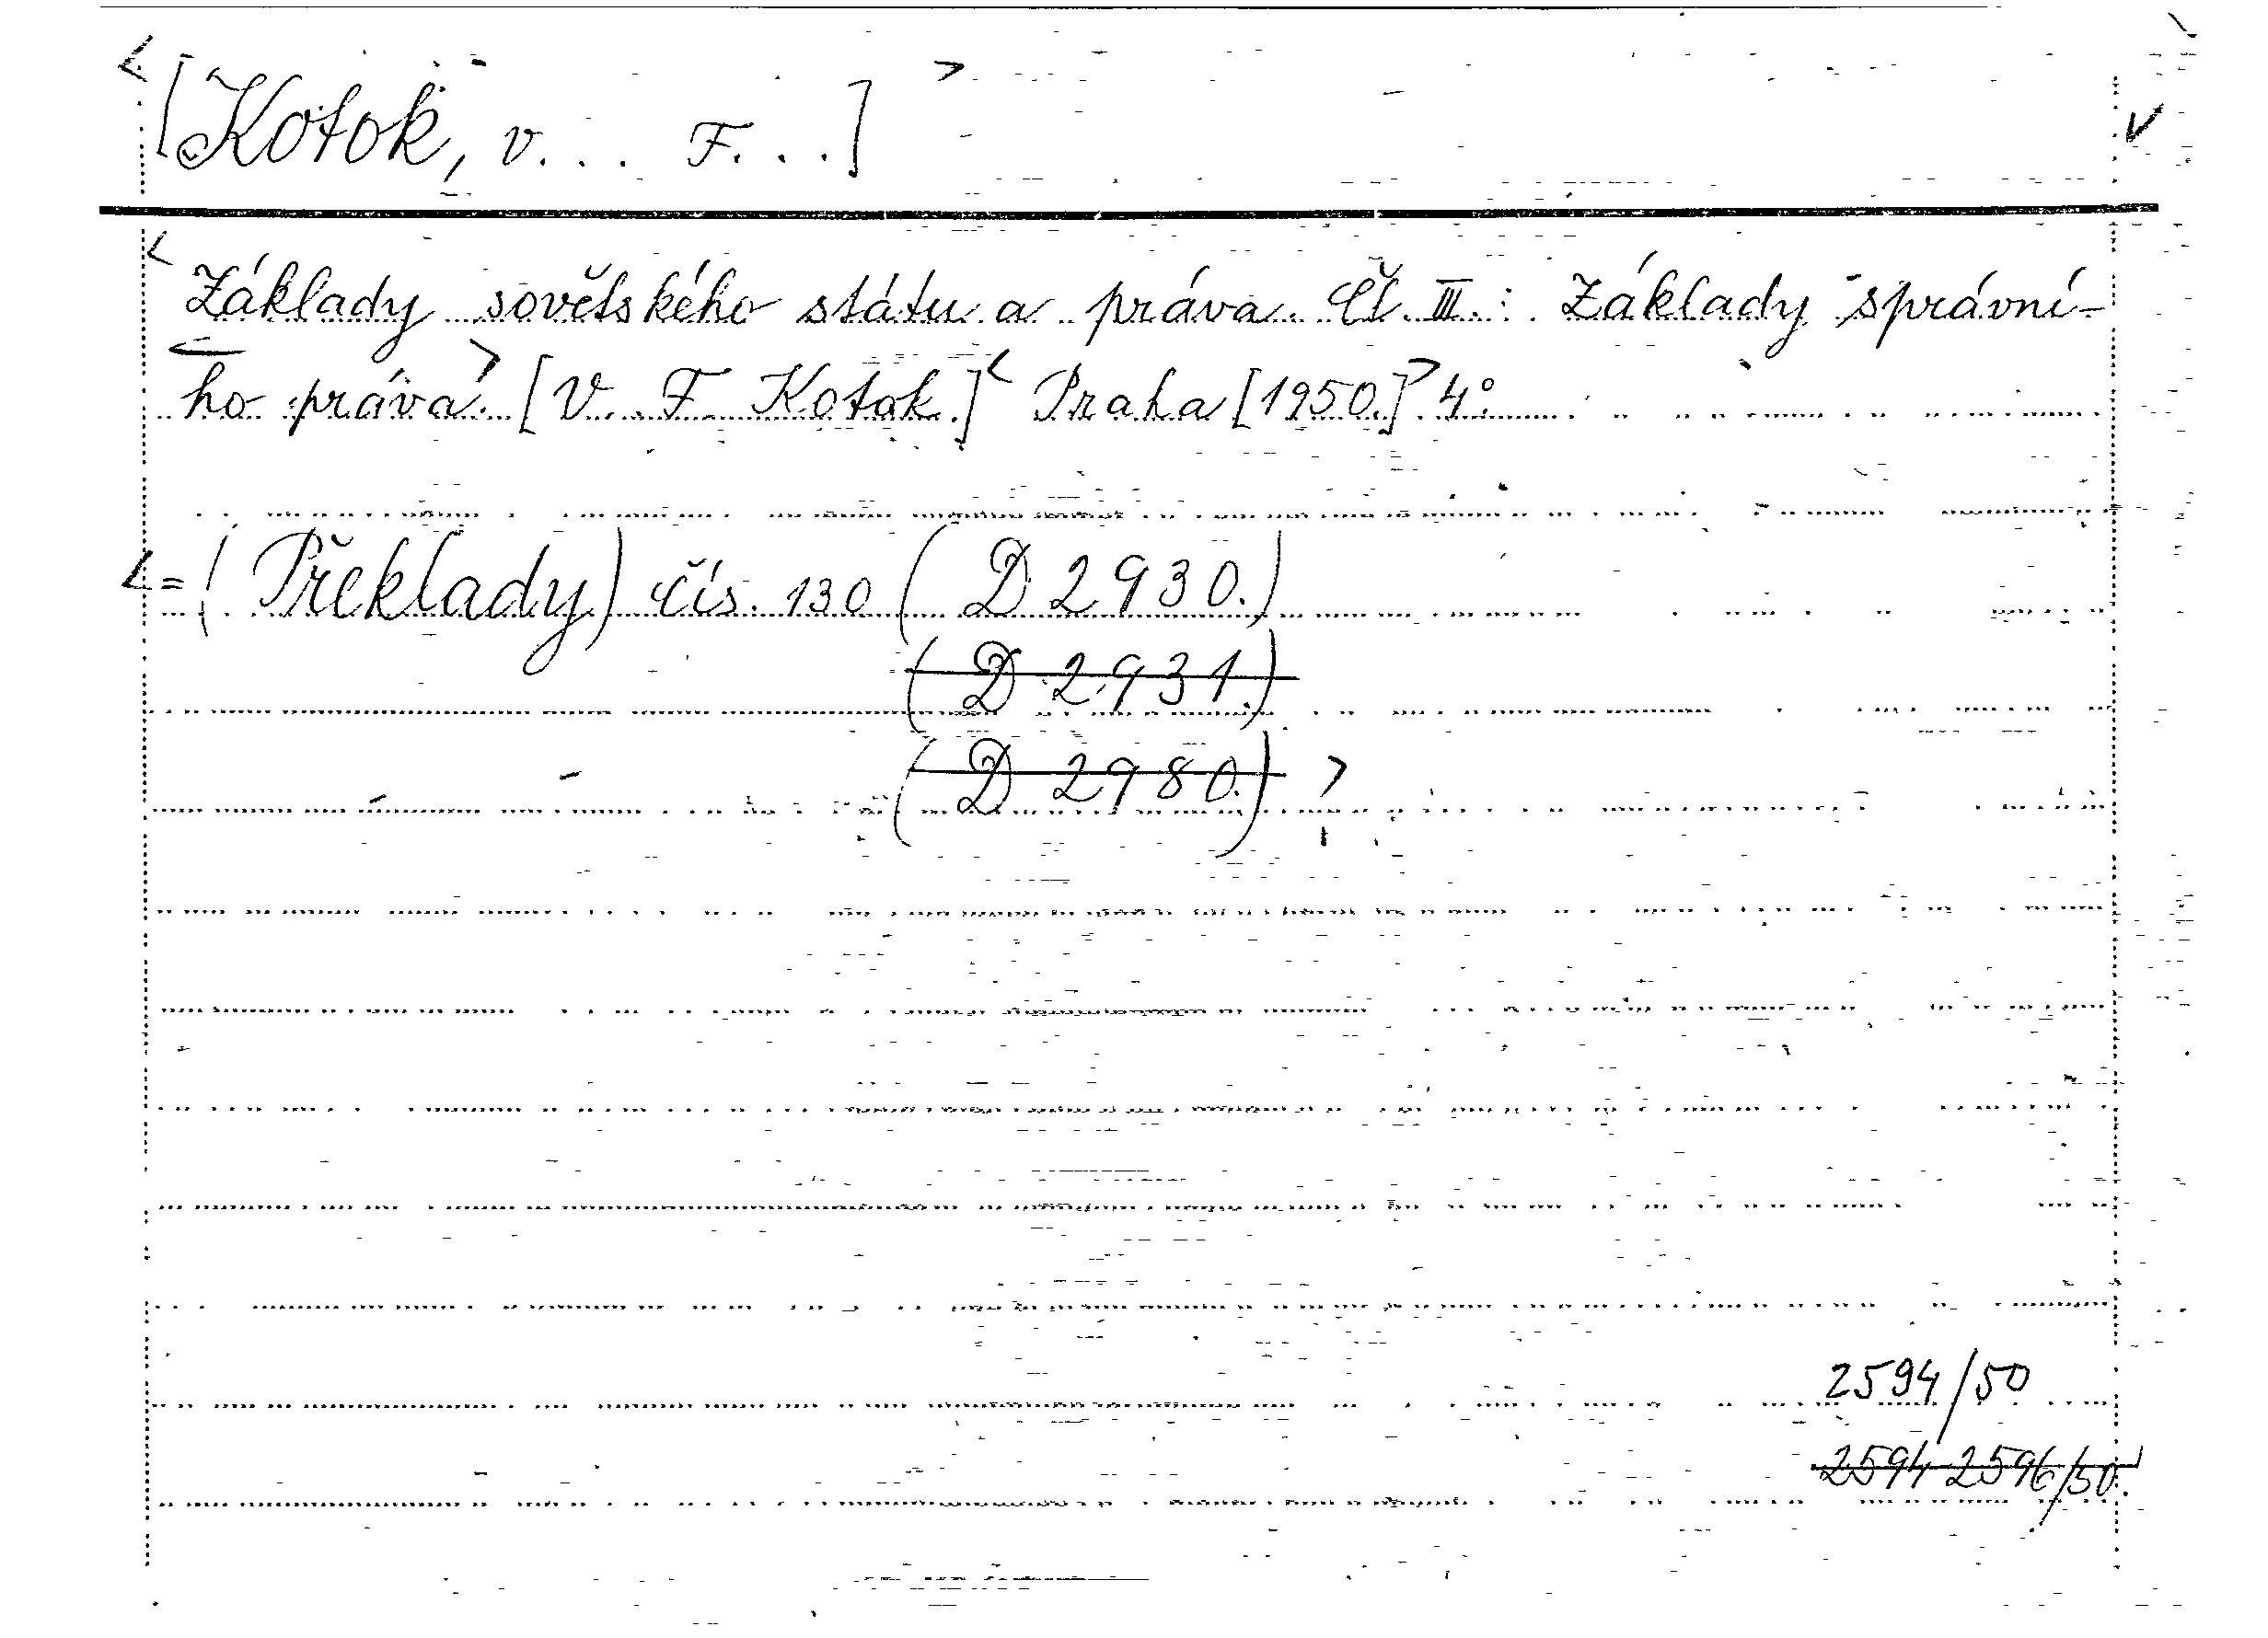 <[Kotok, V... F...]> v
<Základy sovětského státu a práva. Čl. III.: Základy správní-
ho práva.> [V. F. Kotok.] <Praha [1950.]> 4°.
<= (Překlady) čís. 130 (D 2930.)
(D 2931.)
(D 2980.) >
2594/50
2594-2596/50.